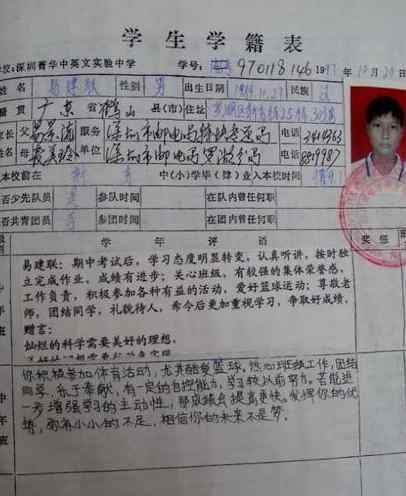 学生学籍表
学校:深圳菁华中英文实验中学 学号: 970118146
姓名 易建联 性别 男 出生日期 1984.10.27 民族 汉
籍贯 广东省鹤山县(市)住址
家长 父 易景流 服务 深圳市邮电局 电话
母 麦美玲 单位 深圳市邮电局 电话
本校前在 中(小)学毕(肄)业入本校时间
是否少先队员 是 参队时间 在队内曾任何职
是否共青团员 参团时间 在团内曾任何职
学年评语 奖惩
易建联:期中考试后,学习态度明显转变,认真听讲,按时独
立完成作业,成绩有进步;关心班级,有较强的集体荣誉感,
工作负责,积极参加各种有益的活动,爱好篮球运动;尊敬老
师,团结同学,礼貌待人,希今后更加重视学习,争取好成绩。
赠言:
灿烂的科学需要美好的理想,
你积极参加体育活动,尤其酷爱篮球,热心班级工作,团结
同学,乐于奉献,有一定的自控能力,学习较以前努力。若能进
一步增强学习的主动性,那成绩会提高更快。发挥你的优
势,弥补小小的不足,相信你的未来不是梦。